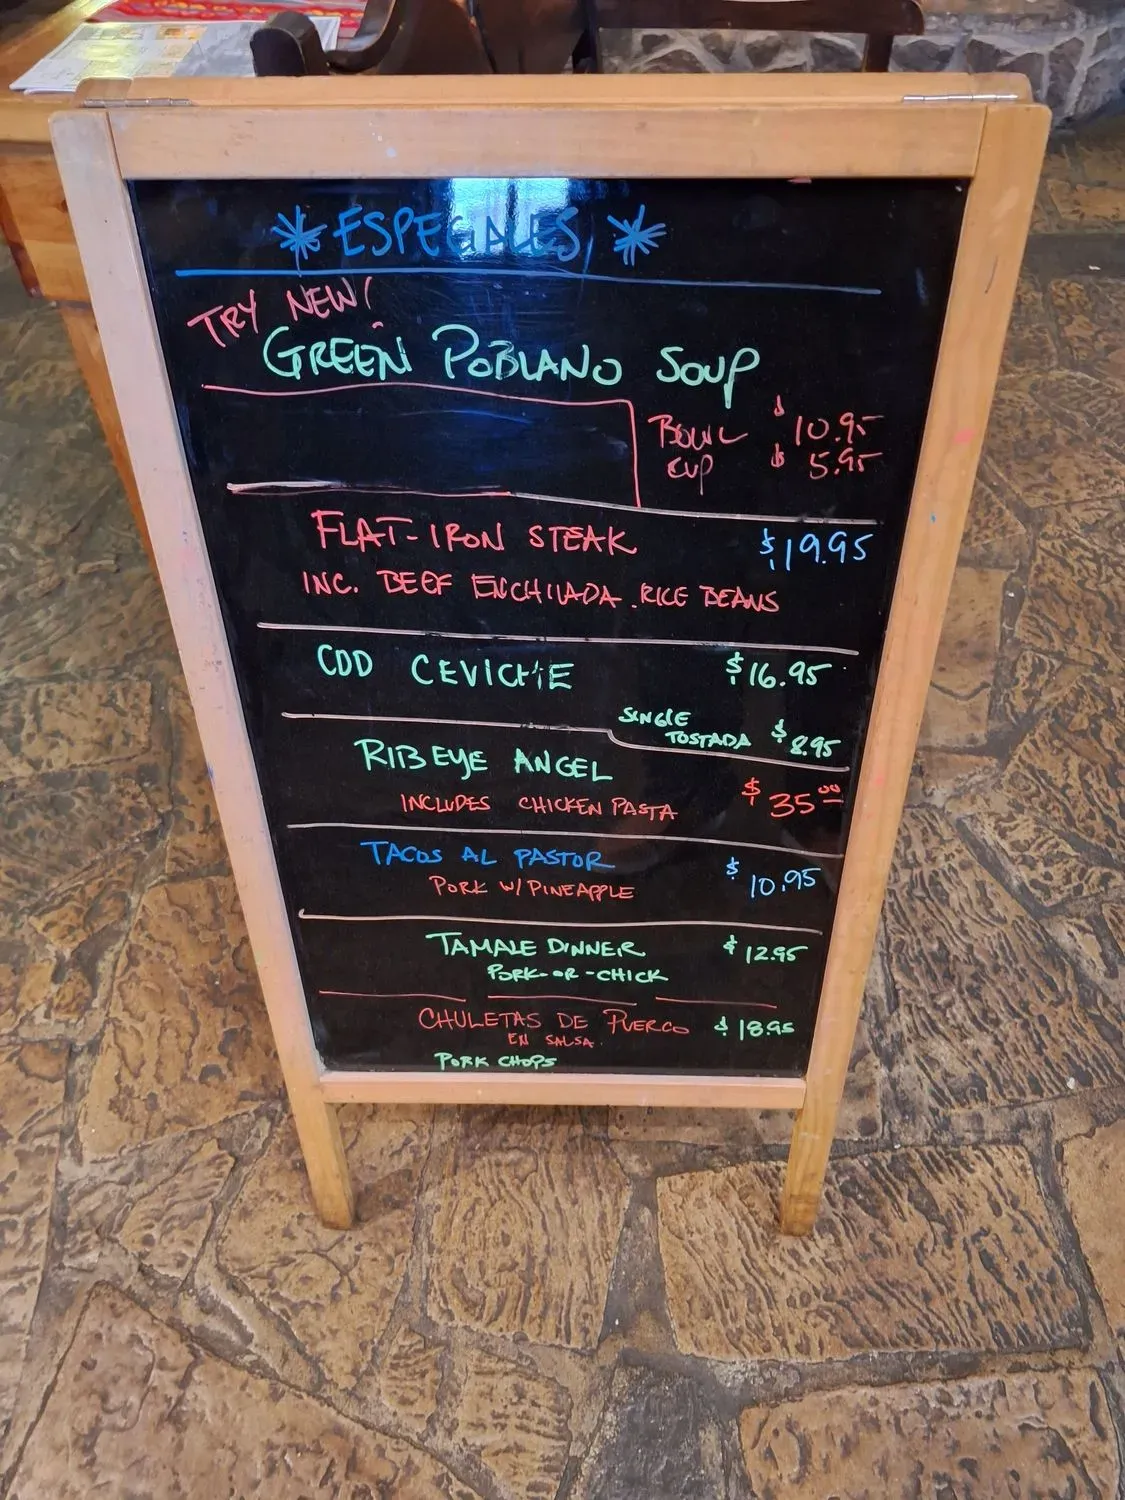 *ESPECIALES*
TRY NEW!
GREEN POBLANO SOUP
BOWL $10.95
CUP $5.95
FLAT-IRON STEAK $19.95
INC. BEEF ENCHILADA. RICE BEANS
COD CEVICHE $16.95
SINGLE
TOSTADA $8.95
RIBEYE ANGEL
INCLUDES CHICKEN PASTA $35.00
TACOS AL PASTOR $10.95
PORK W/PINEAPPLE
TAMALE DINNER $12.95
PORK-OR-CHICK
CHULETAS DE PUERCO $18.95
EN SALSA.
PORK CHOPS